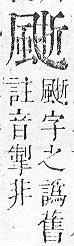 字之譌舊
註音掣非